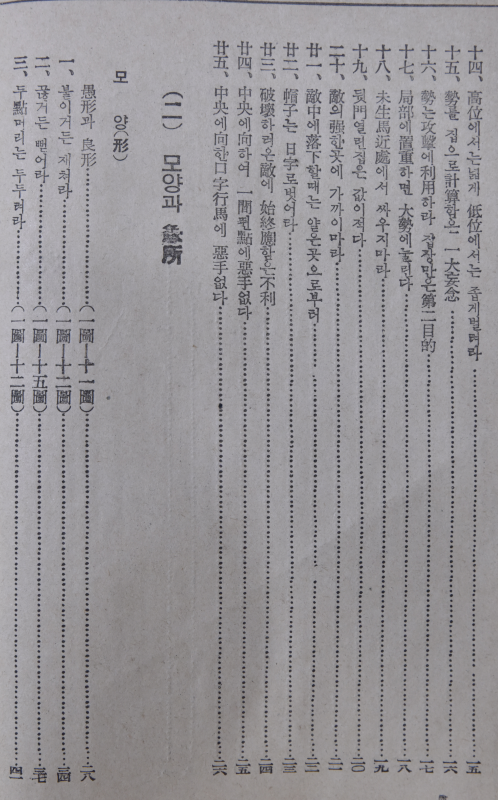 十四、高位에서는넓게 低位에서는 좁게벌려라……一五
十五、勢를 집으로計算함은 一大妄念……一六
十六、勢는攻擊에利用하라 집장만은第二目的……一七
十七、局部에置重하면 大勢에눌린다……一八
十八、未生馬近處에서 싸우지마라……一九
十九、뒷門열린집은 값이적다……二〇
二十、敵의强한곳에 가까이마라……二一
廿一、敵中에落下할때는 얕은곳으로부터……二二
廿二、帽子는 日字로벗어라……二三
廿三、破壞하려온敵에 始終應함은不利……二四
廿四、中央에向하여 一間뛴點에惡手없다……二五
廿五、中央에向한口字行馬에惡手없다……二六
(二) 모양과 急所
모 양(形)
愚形과 良形……(一圖—十一圖)……二八
一、붙이거든 제쳐라……(一圖—十二圖)……三四
二、끊거든 뻗어라……(一圖—十五圖)……三七
三、두點머리는 두두려라……(一圖—十二圖)……四一